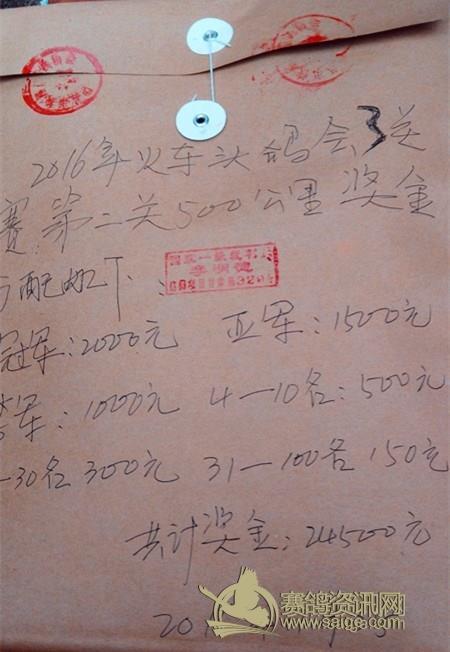 2016年火车头鸽会3关
赛第二关500公里奖金
分配如下:
冠军:2000元 亚军:1500元
季军:1000元 4-10名:500元
-30名300元 31-100名150元
共计奖金:24500元
201
赛鸽资讯网
www.saige.com